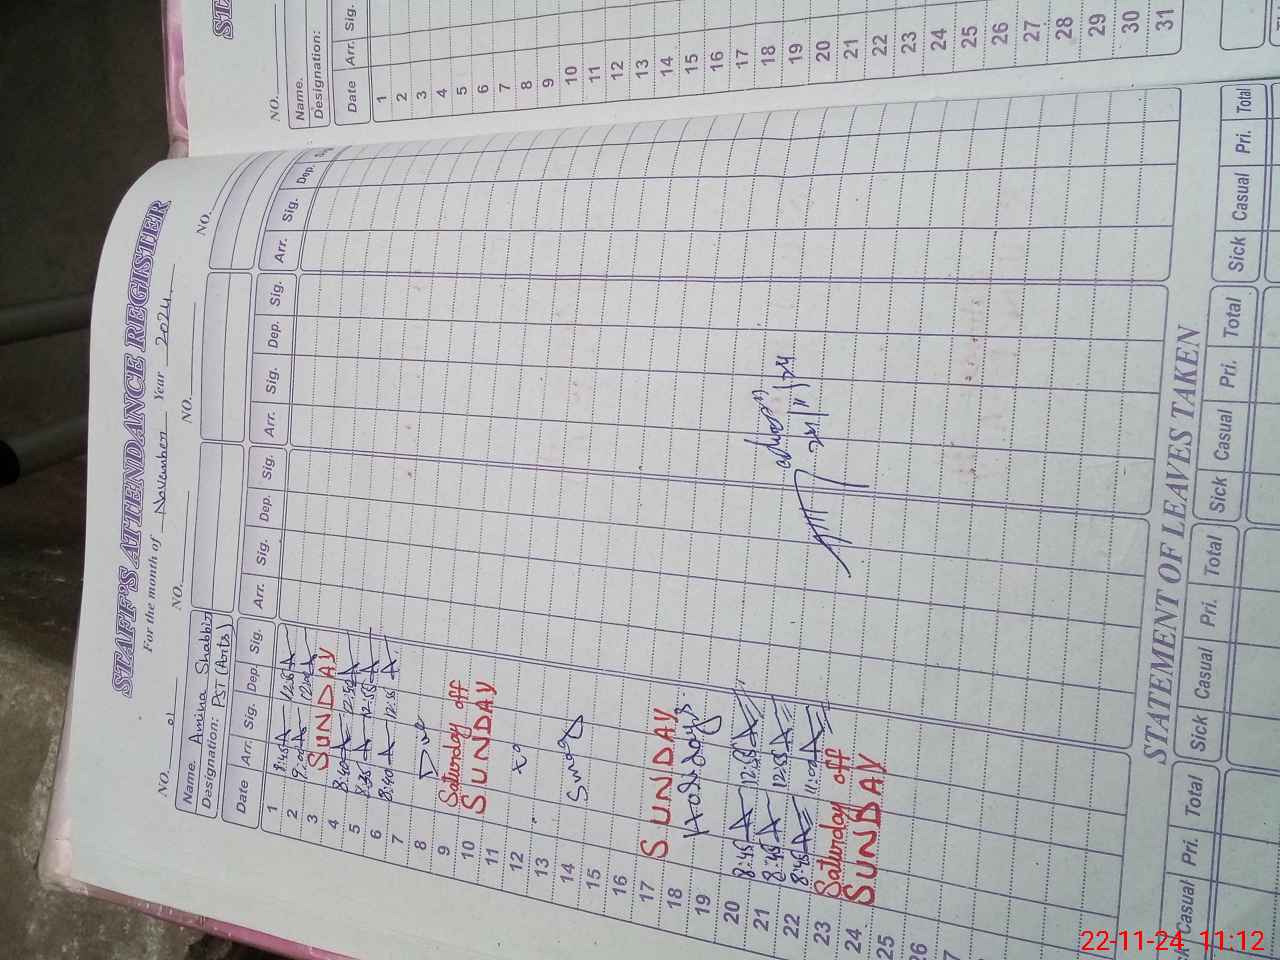 STAFF'S ATTENDANCE REGISTER
For the month of November Year 2024.
NO. 01 NO. NO. NO.
Name. Amina Shabbir
Designation: PST (Arts)
Date Arr. Sig. Dep. Sig. Arr. Sig. Dep. Sig. Arr. Sig. Dep. Sig. Arr. Sig. Dep.
1 8:45 12:55
2 9:00 12:00
3 SUNDAY
4 8:40 12:50
5 8:35 12:55
6 8:40 12:55
7
8
9 Saturday off
10 SUNDAY
11
12
13
14 Smog
15
16
17 SUNDAY
18 Holidays
19
20 8:45 12:55
21 8:45 12:55
22 8:45 11:00
23 Saturday off
24 SUNDAY
25
26
STATEMENT OF LEAVES TAKEN
Casual Pri. Total Sick Casual Pri. Total Sick Casual Pri. Total Sick Casual Pri. Total
NO.
Name.
Designation:
Date Arr. Sig.
1
2
3
4
5
6
7
8
9
10
11
12
13
14
15
16
17
18
19
20
21
22
23
24
25
26
27
28
29
30
31
22-11-24 11:12